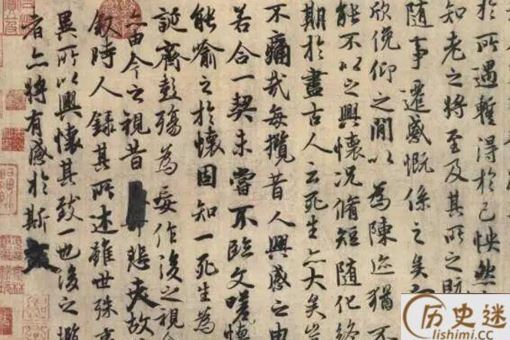 於所遇蹔得於己怏然
知老之將至及其所之既
隨事遷感慨係之矣
欣俛仰之閒以為陳迹猶不
能不以之興懷況脩短隨化終
期於盡古人云死生亦大矣豈
不痛哉每攬昔人興感之由
若合一契未嘗不臨文嗟悼
能喻之於懷固知一死生為
誕齊彭殤為妄作後之視今
亦由今之視昔悲夫故
敘時人錄其所述雖世殊事
異所以興懷其致一也後之攬
者亦將有感於斯文
历史迷
lishimi.cc